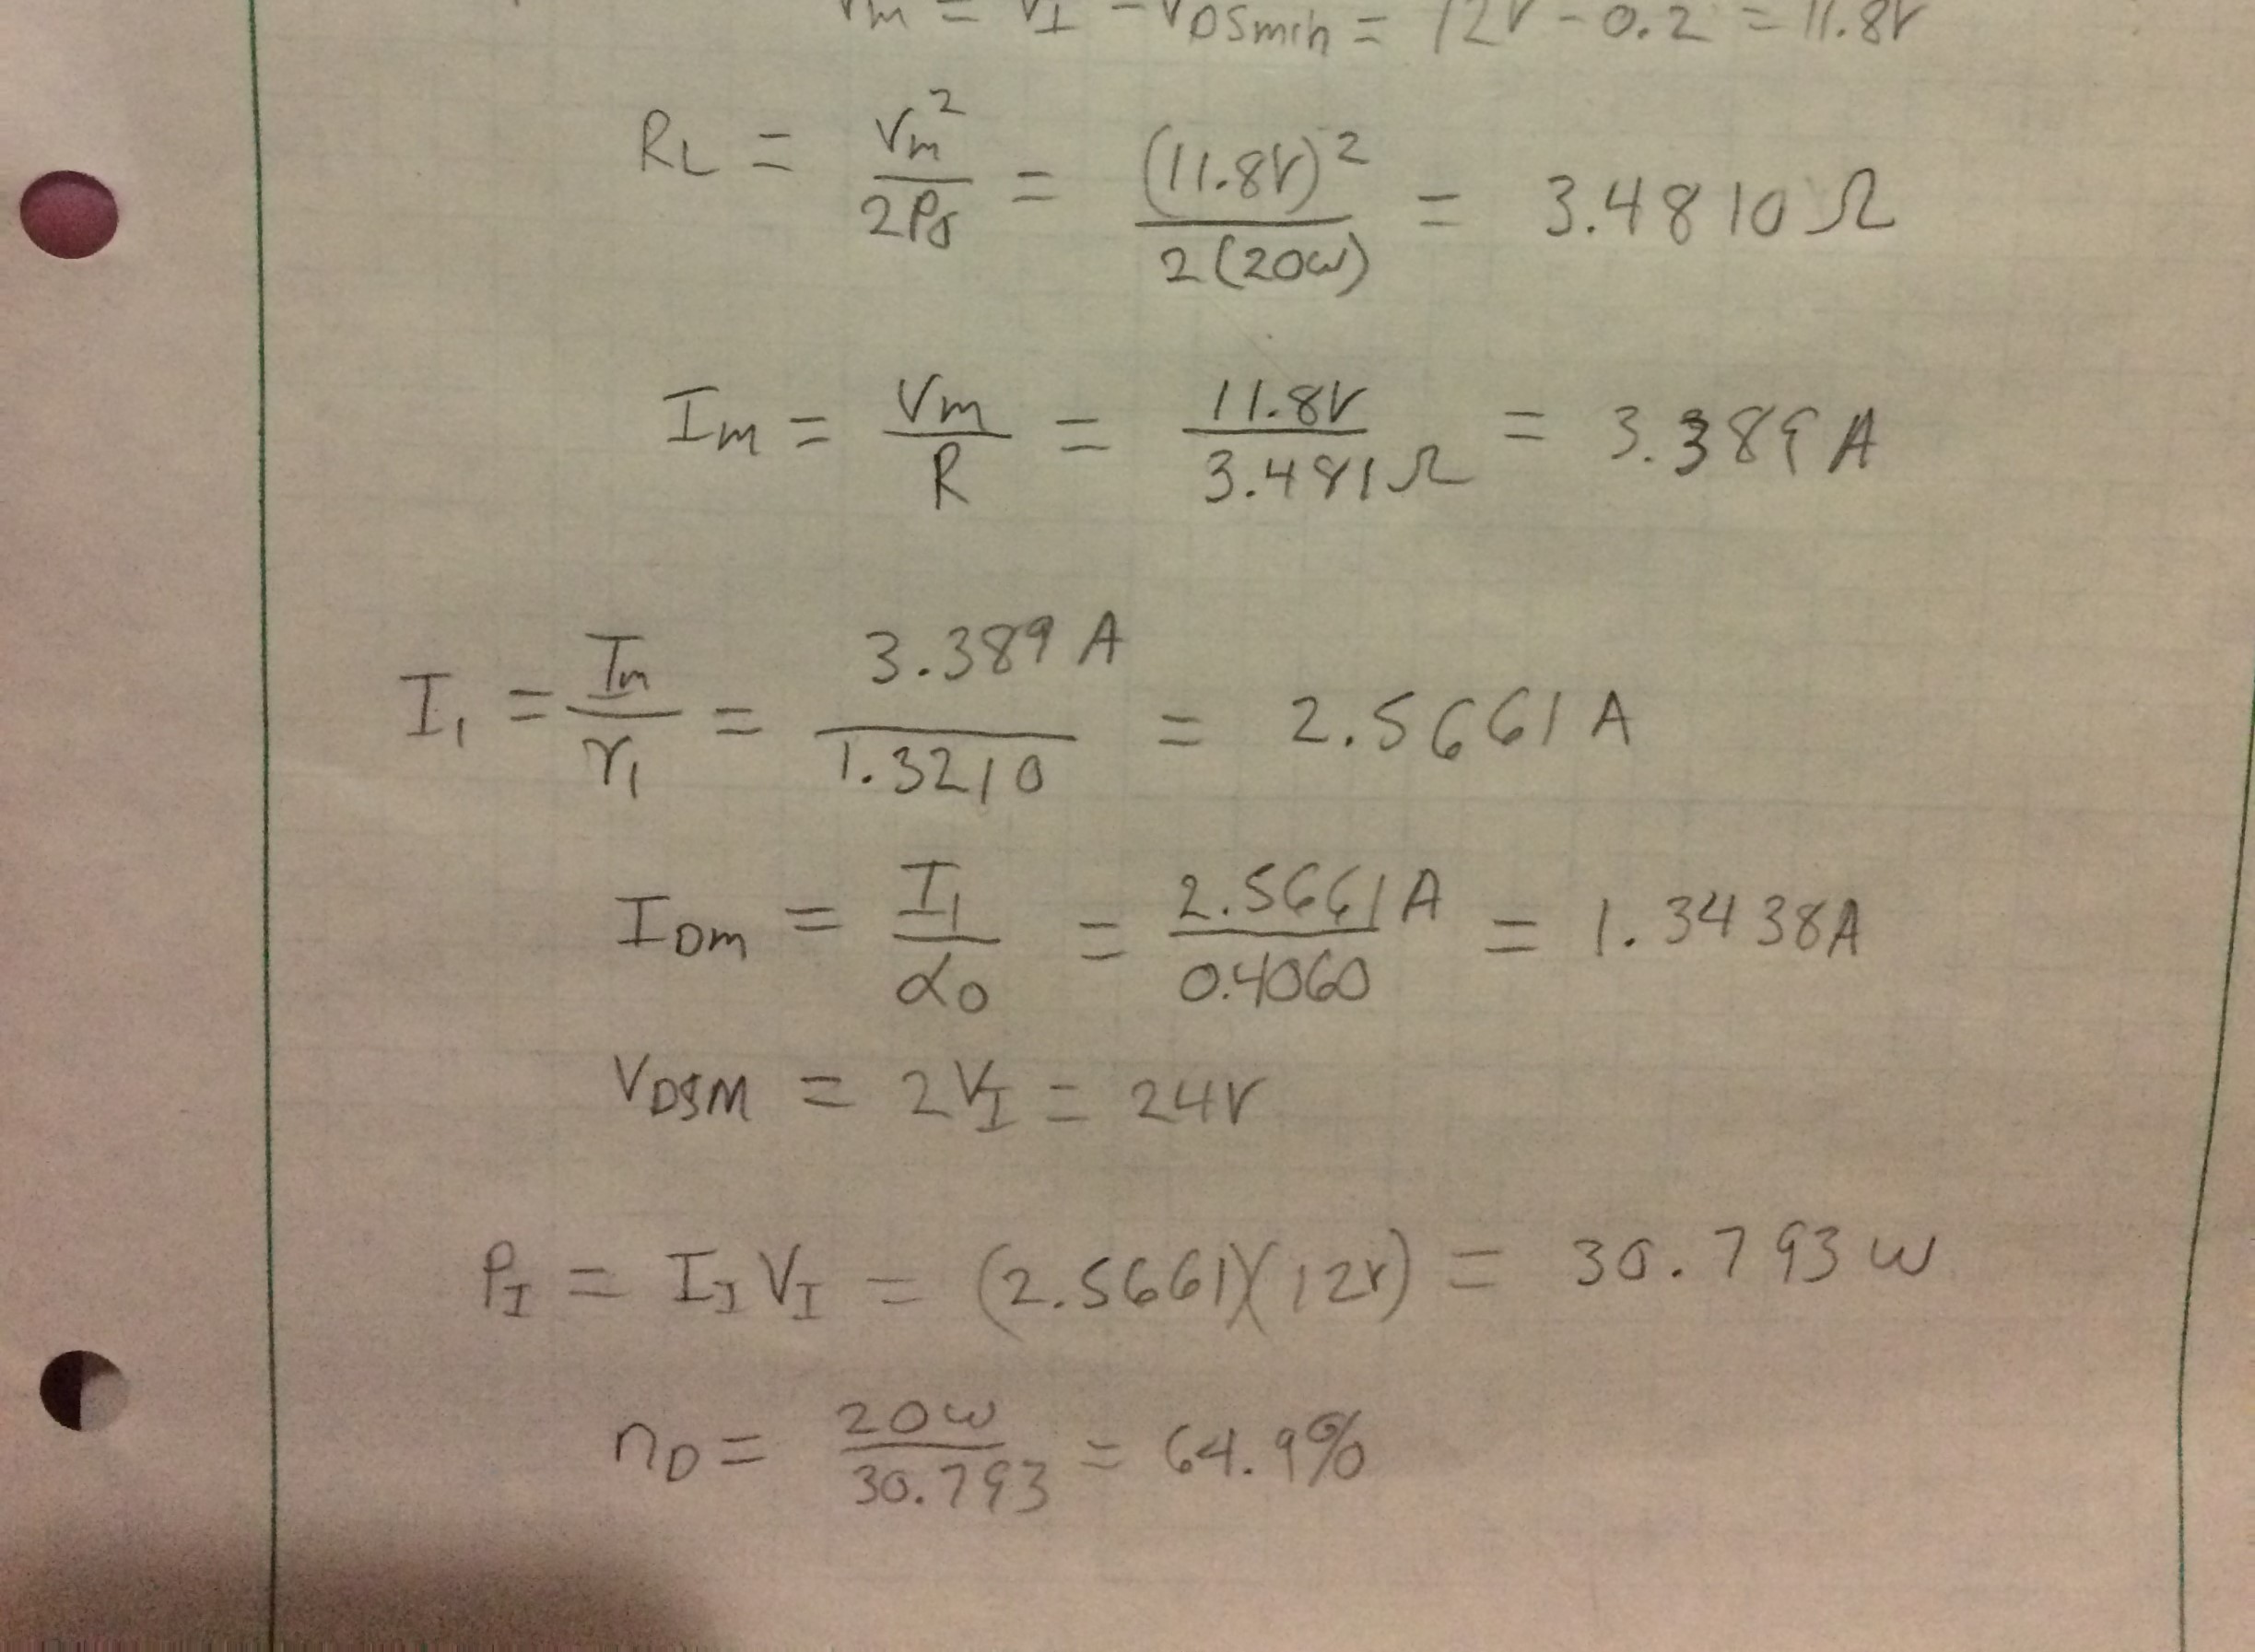 Vm = VI - VDSmin = 12V - 0.2 = 11.8V
RL = Vm² / 2Po = (11.8V)² / 2(20W) = 3.4810 Ω
Im = Vm / R = 11.8V / 3.481Ω = 3.389 A
I1 = Im / γ1 = 3.389 A / 1.3210 = 2.5661 A
IDm = I1 / α0 = 2.5661 A / 0.4060 = 1.3438A
VDSM = 2VI = 24V
PI = II VI = (2.5661)(12V) = 30.793 W
ηD = 20W / 30.793 = 64.9%